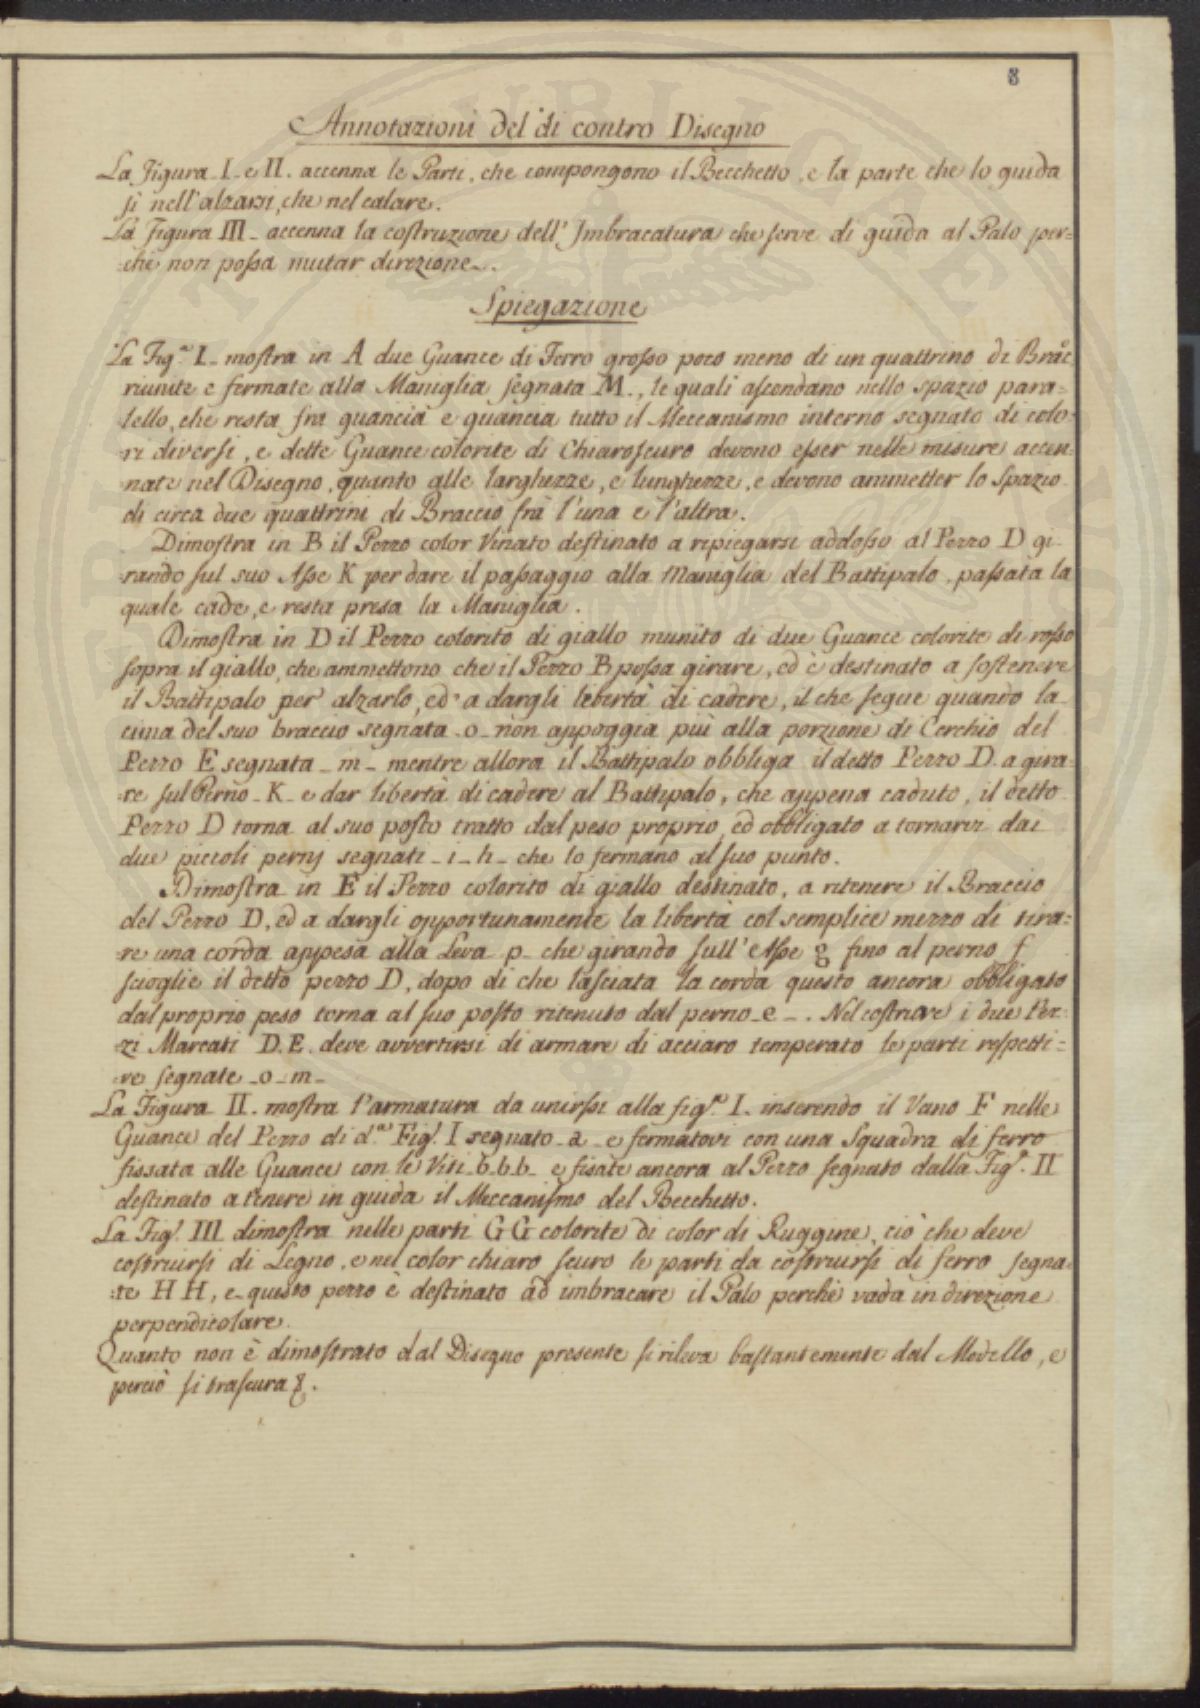 8
Annotazioni del di contro Disegno
La Figura I e II. accenna le Parti, che compongono il Becchetto, e la parte che lo guida
sì nell'alzarsi, che nel calare.
La Figura III accenna la costruzione dell'Imbracatura che serve di guida al Palo per=
=chè non possa mutar direzione.
Spiegazione
La Fig.ª I mostra in A due Guance di Ferro grosso poco meno di un quattrino di Brac.º
riunite e fermate alla Maniglia segnata M., le quali ascondano nello spazio para=
lello, che resta fra guancia e guancia tutto il Meccanismo interno segnato di colo=
ri diversi, e dette Guance colorite di Chiaroscuro devono esser nelle misure accen=
nate nel Disegno, quanto alle larghezze, e lunghezze, e devono ammetter lo spazio
di circa due quattrini di Braccio frà l'una e l'altra.
Dimostra in B il Pezzo color Vinato destinato a ripiegarsi addosso al Pezzo D gi=
rando sul suo Asse K per dare il passaggio alla Maniglia del Battipalo, passata la
quale cade, e resta presa la Maniglia.
Dimostra in D il Pezzo colorito di giallo munito di due Guance colorite di rosso
sopra il giallo, che ammettono che il Pezzo B possa girare, ed è destinato a sostenere
il Battipalo per alzarlo, ed a dargli libertà di cadere, il che segue quando la
cima del suo braccio segnata o non appoggia più alla porzione di Cerchio del
Pezzo E segnata m mentre allora il Battipalo obbliga il detto Pezzo D a gira=
=re sul Perno K e dar libertà di cadere al Battipalo, che appena caduto, il detto
Pezzo D torna al suo posto tratto dal peso proprio, ed obbligato a tornarvi dai
due piccoli pernj segnati i h che lo fermano al suo punto.
Dimostra in E il Pezzo colorito di giallo destinato, a ritenere il Braccio
del Pezzo D, ed a dargli opportunamente la libertà col semplice mezzo di tira=
=re una corda appesa alla Leva p che girando sull'Asse g fino al perno f
scioglie il detto pezzo D, dopo di che lasciata la corda questo ancora obbligato
dal proprio peso torna al suo posto ritenuto dal perno e. Nel costruire i due Pez=
zi Marcati D.E. deve avvertirsi di armare di acciaro temperato le parti respetti=
=ve segnate o m
La Figura II. mostra l'armatura da unirsi alla fig.ª I. inserendo il Vano F nelle
Guance del Pezzo di d.ª Fig.ª I segnato a e fermatovi con una Squadra di ferro
fissata alle Guance con le Viti b.b.b. e fisate ancora al Pezzo segnato dalla Fig.ª II
destinato a tenere in guida il Meccanismo del Becchetto.
La Fig.ª III dimostra nelle parti GG colorite di color di Ruggine, ciò che deve
costruirsi di Legno, e nel color chiaro scuro le parti da costruirsi di ferro segna=
=te H H, e questo pezzo è destinato ad imbracare il Palo perchè vada in direzione
perpendicolare.
Quanto non è dimostrato dal Disegno presente si rileva bastantemente dal Modello, e
perciò si trascura &.